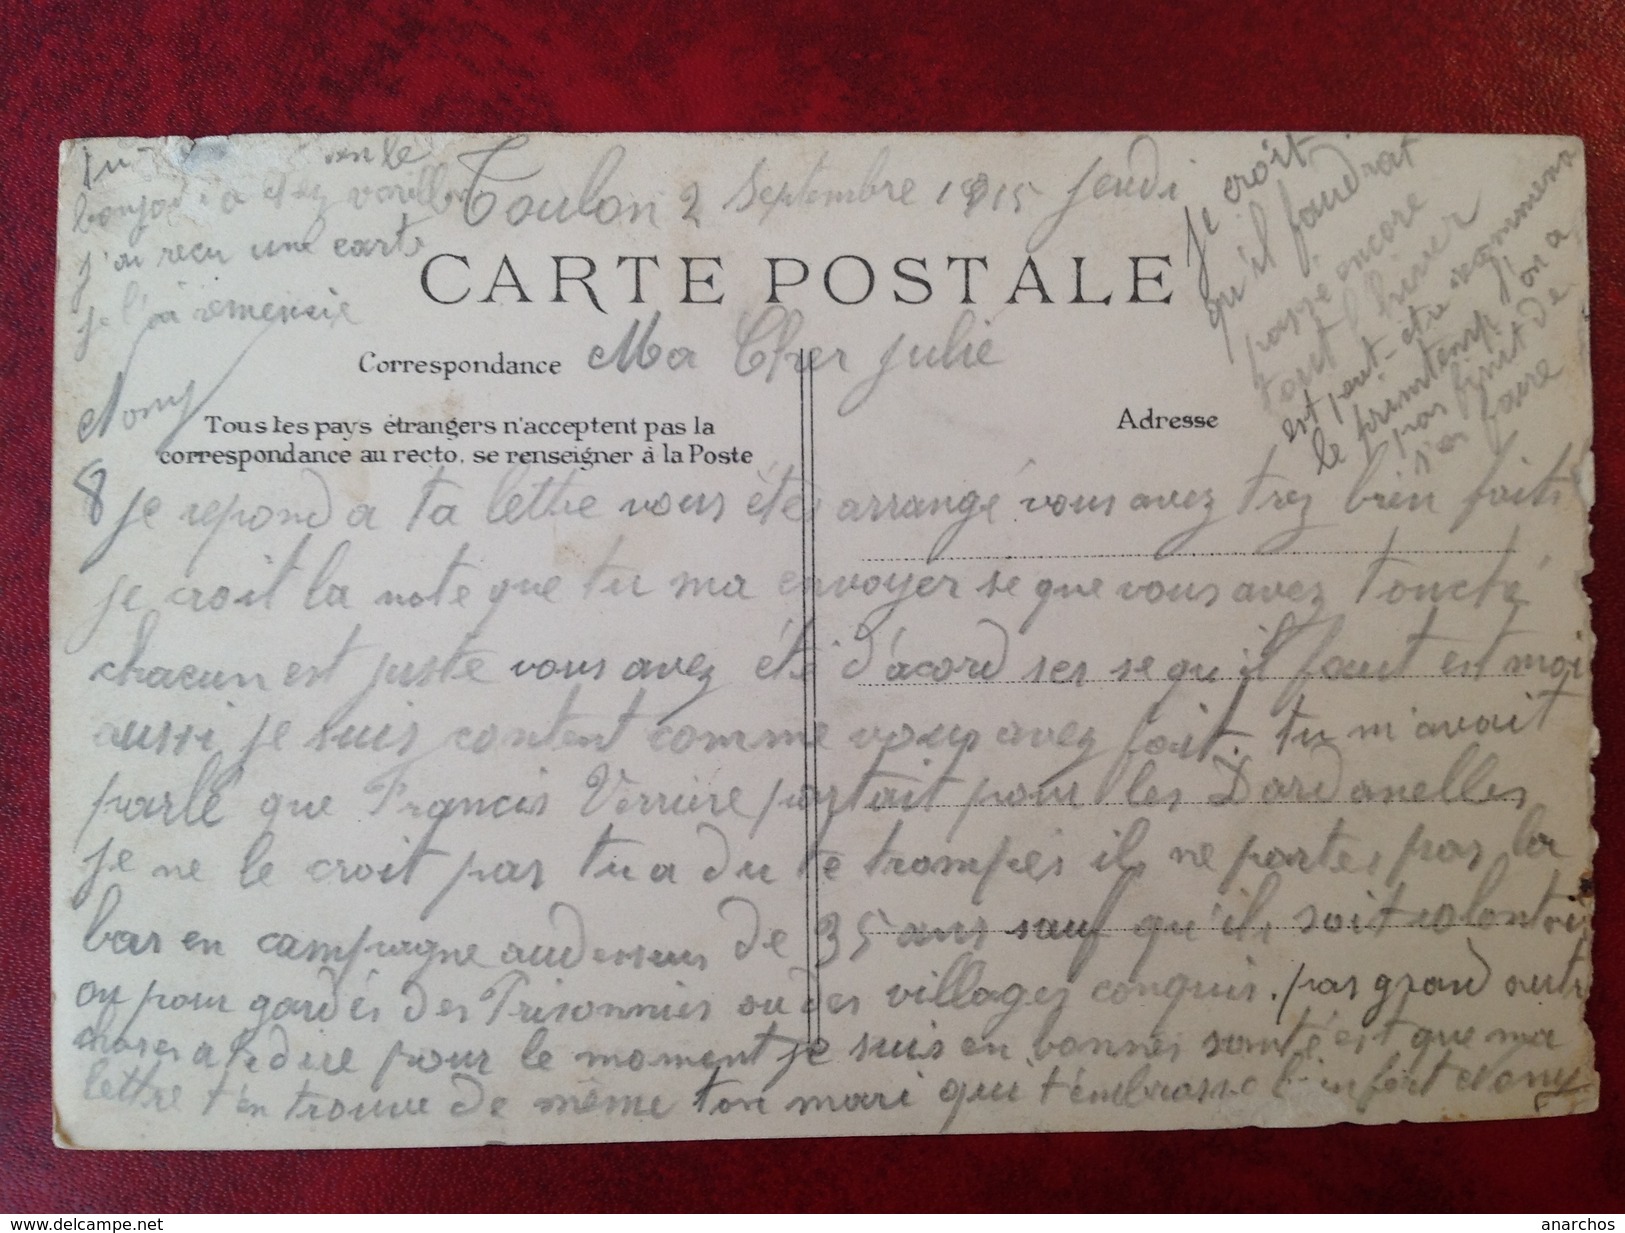 Toulon 2 Septembre 1915 Jeudi
bonjour a
j'ai reçu une carte
je l'ai remercie
Nony
je croit
qu'il faudrat
passé encore
tout l'hiver
est peut-être recommens
le printemp j'on a
pas finit de
s'en faire
CARTE POSTALE
Ma Cher Julie
Correspondance
Tous les pays étrangers n'acceptent pas la
correspondance au recto, se renseigner à la Poste
Adresse
8 je repond a ta lettre vous étes arrangé vous avez trez bien faits
je croit la note que tu ma envoyer se que vous avez touché
chacun est juste vous avez été d'acord ses se qu'il faut est moi
aussi je suis content comme vous avez fait. tu m'avait
parlé que Francis Verriére partait pour les Dardanelles
je ne le croit pas tu a du te trompés ils ne partes pas la
bas en campagne audessus de 35 ans sauf qu'ils soit volontoi
ou pour gardés des Prisonniés ou des villages conquis. pas grand autr
choses a te dire pour le moment je suis en bonnes santé est que ma
lettre t'en trouve de même ton mari qui t'embrasse bien fort Nony